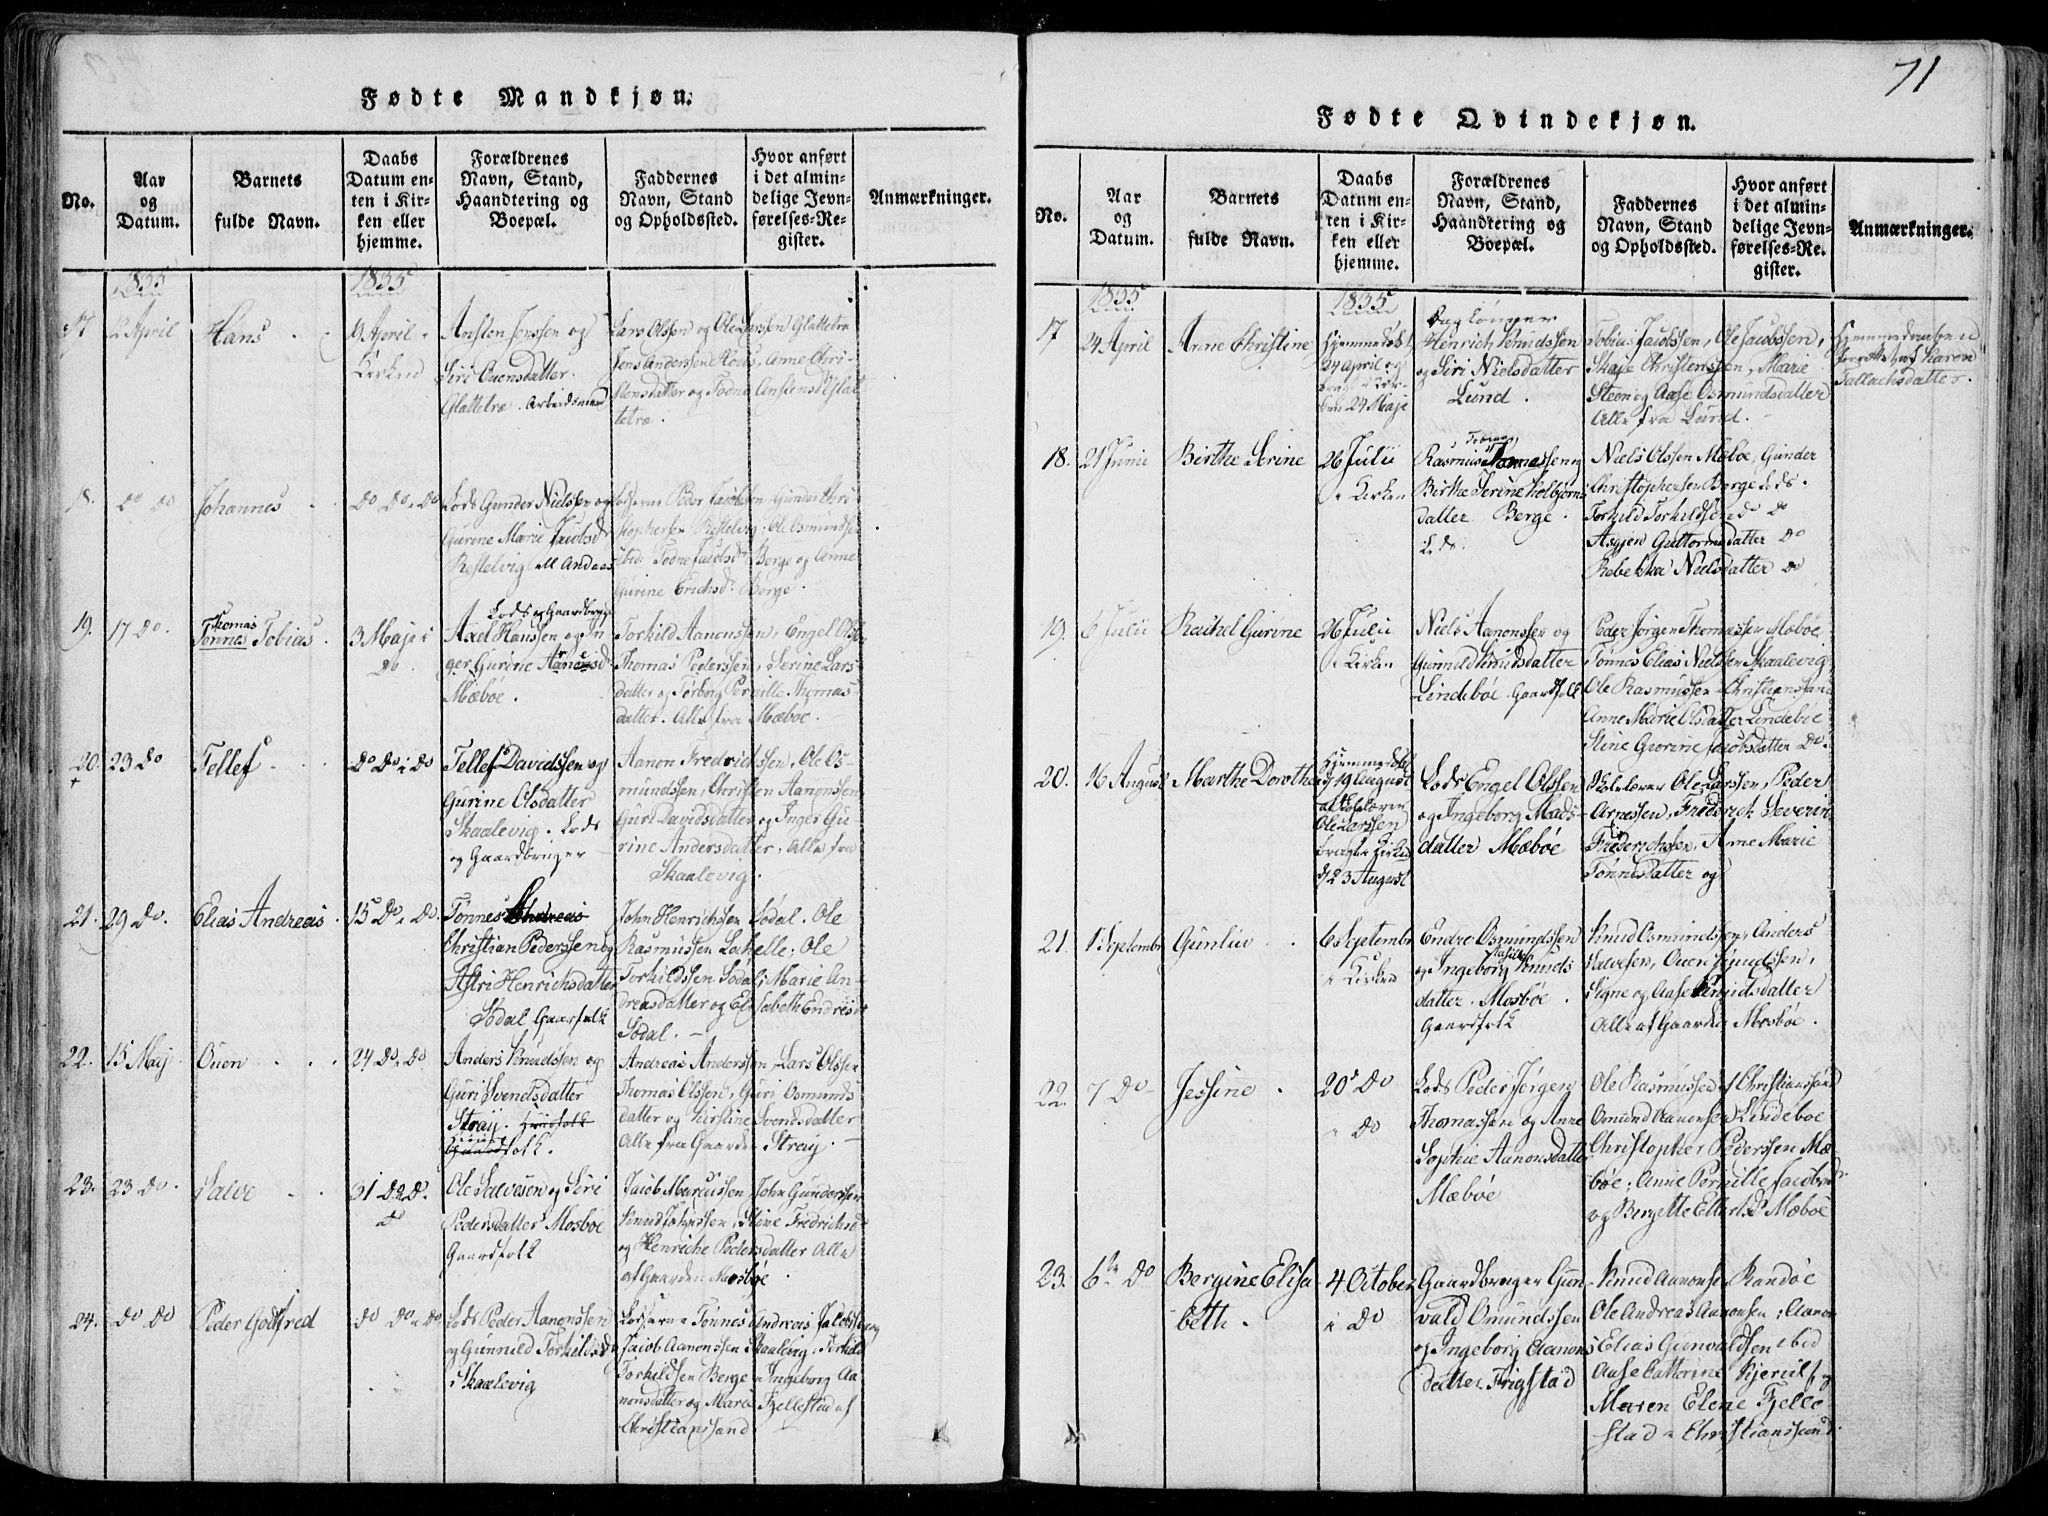 71
Fødte Mandkjøn.
No.
Aar
og
Datum.
Barnets
fulde Navn.
Daabs
Datum en-
ten i Kir-
ken eller
hjemme.
Forældrenes
Navn, Stand,
Haandtering og
Boepæl.
Faddernes
Navn, Stand
og Opholdssted.
Hvor anført
i det almin-
delige Jevn-
førelses-Re-
gister.
Anmærkninger.
1835
1835
17
12 April
Hans
9 April
Kirken
Ansten Jenssen og
Siri Ouensdatter
Glattetræ. Arbeidsmand
Lars Olssen og Ole Larssen Glattetræ
Jens Anderssen
datter og Todne
tetræ.
18.
do do
Johannes
do do i do
Lods Gunder Nielssen og
Gurine Marie Jacobsdr
Restelvig
Lodserne Peder Jacobssen Gunder Chri-
stophersen Restelvig; Ole Osmundsen
ibid. Todne Jacobsdr Berge og Anne
Gurine Erichsdr Berge.
19.
17 do.
Thomas
Tønnes Tobias.
3 Maji i
do
Lods og Gaardbruger
Axel Hanssen og In
ger Gurine Aanonsd.
Mæbøe.
Torkild Aanonssen, Engel Ols
Thomas Pederssen, Serine Lars
datter og Torborg Pernille Thomas
datter. Alle fra Mæbøe.
20.
23 do
Tellef
do do i do
Tellef Davidssen og
Gurine Olsdatter
Skaalevig. Lods
og Gaardbruger
Aanon Fredrichssen, Ole Os-
mundssen, Christen Aanonssen
Guri Davidsdatter og Inger Gu-
rine Andersdatter. Alle fra
Skaalevig.
21.
29 do.
Elias Andreas
15 do i do.
Tønnes Andreas
Christian Pederssen og
Astri Henrichsdatter
Sødal Gaarfolk
John Henrichsen Sødal. Ole
Rasmussen Lochelle; Ole
Torkildssen Sødal; Marie An-
dreasdatter og Elisabeth Endresdr
Sødal.
22.
15 Maij
Ouen
24 do i do
Anders Knudssen og
Guri Svendsdatter
Straij.
Andreas Anderssen, Lars Olssen
Thomas Olssen, Guri Osmunds
datter og Kirstine Svendsdatter
Alle fra Gaarden Straij.
23.
23 do.
Salve
31 do i
do
Ole Salvesen og Siri
Pedersdatter Mosbøe
Gaardfolk
Jacob Marcussen, John Gunderssen
Knud Johnssen, Stine Fredrichsdr
og Henriche Pedersdatter Alle
af Gaarden Mosbøe.
24.
do do
Peder Godtfred
do do i do
Lods Peder Aanonssen
og Gunnild Torkildsdr
Skaalevig
Lodserne Tønnes Andreas Jacobssen og
Jacob Aanonssen Skaalevig; Torkild
Torkildssen Berge, Ingeborg Aa-
nonsdatter og Marie Fjellestad af
Christianssand
Fødte Qvindekjøn.
No.
Aar
og
Datum.
Barnets
fulde Navn.
Daabs
Datum en-
ten i Kir-
ken eller
hjemme.
Forældrenes
Navn, Stand,
Haandtering og
Boepæl.
Faddernes
Navn, Stand
og Opholdssted.
Hvor anført
i det almin-
delige Jevn-
førelses-Re-
gister.
Anmærkninger.
1835
1835
17
24 April
Anne Christine
Hjemmedøbt
24 April og
ken 24 Maji
Daglønner
Henrich Knudssen
og Siri Nielsdatter
Lund.
Tobias Jacobssen, Ole Jacobssen,
Christenssen, Marie
Steen og Aase Osmundsdatter
Alle fra Lund.
Hjemmedaaben
forrettet af Karen
Tallachsdatter.
18.
21 Junii
Birthe Serine
26 Julii
i Kirken
Rasmus Tønnessen og
Birthe Serine Kolbjørns
datter Berge.
Lods.
Niels Olssen Mæbøe, Gunder
Christophersen Berge Lods.
Torkild Torkildssen do do
Asgjen Guttormsdatter do
Rebekka Nielsdatter do
19.
6 Julii
Rachel Gurine
26 Julii
i Kirken
Niels Aanonssen og
Gunnild Knudsdatter
Lindebøe Gaardfolk
Peder Jørgen Thomassen Mæbøe
Tønnes Elias Nielssen Skaalevig
Ole Rasmussen Christianssand
Anne Marie Olsdatter Lindebøe
Stine Gurine Jacobsdatter do.
20.
16 August
Marthe Dorothea
Hjemmedøbt
d 19 August
af Skolelærer
Ole Larssen
bragt i Kirken
d 23 August
Lods Engel Olssen
og Ingeborg Mads-
datter Mæbøe
Skolelærer Ole Larssen, Peder
Arnessen, Friderich Severin
Friderichssen, Anne Marie
Tønnesdatter og
21.
1 Septembr
Gunluv
6 Septembr
i Kirken
Endre Osmundssen
og Ingeborg Knuds
datter. Mosbøe.
Gaardfolk
Knud Osmundssen, Anders
Salvesen, Ouen Knudssen,
Signe og Aase Knudsdatter
Alle af Gaarden Mosbøe.
22.
7 do
Jessine
20 do
i do
Lods Peder Jørgen
Thomassen og Anne
Sophie Aanonsdatter
Mæbøe
Ole Rasmussen af Christianssand
Omund Aanonsen Lindebøe
Christopher Pederssen Mæ-
bøe; Anne Pernille Jacobsdr
og Bergette Ellertsdr Mæbøe
23.
6te do
Bergine Elisa
beth.
4 October
i do
Gaardbruger Gun
vald Omundssen
og Ingeborg Aanons
datter Frigstad
Knud Aanonsen Randøe
Ole Andreas Aanonsen; Aanon
Elias Gunvaldssen ibid
Aase Cathrine Kjerulf og
Maren Elene Fjelle
stad i Christianssand.